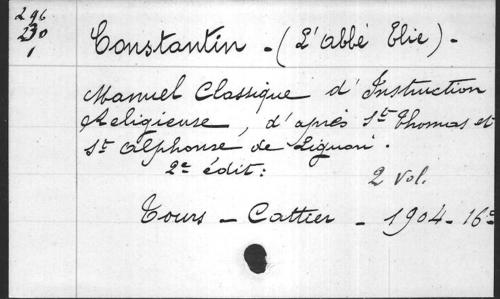 296
230
1
Constantin - (L'abbé Elie) -
Manuel Classique d'Instruction
Religieuse, d'après St Thomas et
St Alphonse de Liguori.
2e édit:
2 vol.
Tours - Cattier - 1904 - 16°